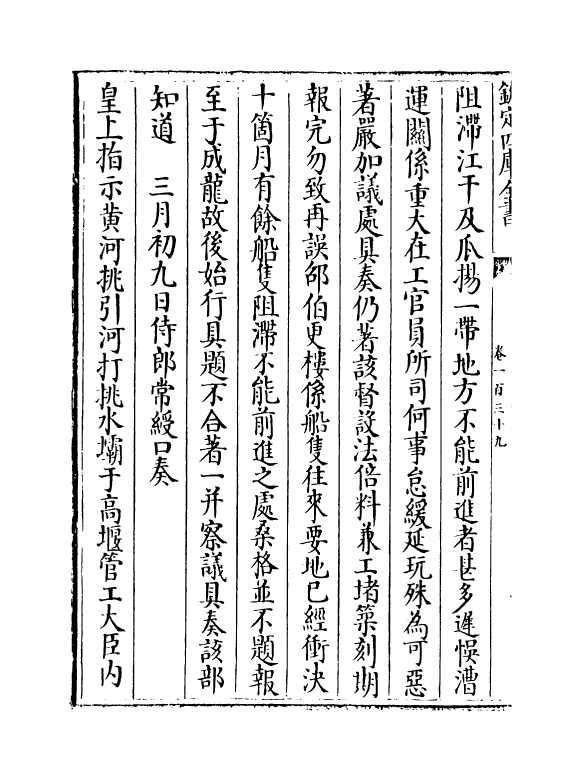 欽定四庫全書
卷一百三十九
阻滯江干及瓜揚一帶地方不能前進者甚多遲悞漕
運關係重大在工官員所司何事怠緩延玩殊為可惡
著嚴加議處具奏仍著該督設法倍料兼工堵築刻期
報完勿致再誤邵伯更樓係船隻往來要地已經衝決
十箇月有餘船隻阻滯不能前進之處桑格並不題報
至于成龍故後始行具題不合著一并察議具奏該部
知道　三月初九日侍郎常綬口奏
皇上指示黃河挑引河打挑水壩于高堰管工大臣内